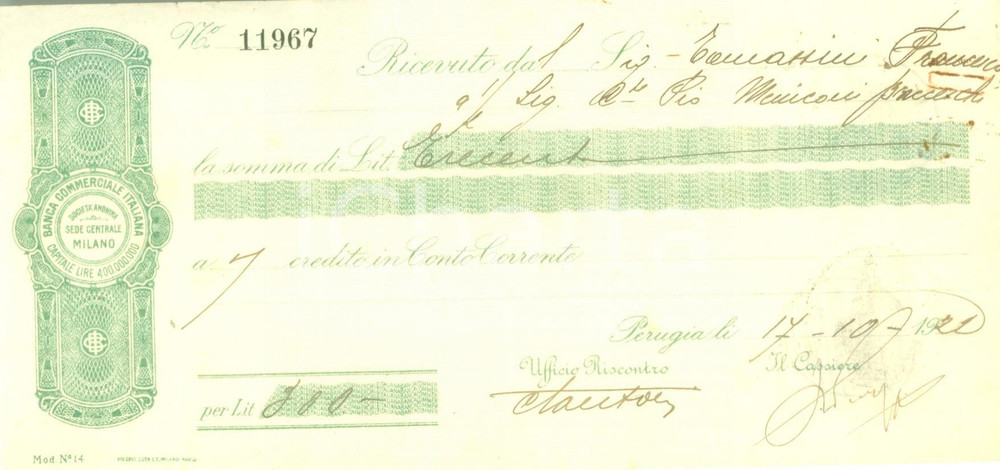 Nº 11967
Ricevuto dal Sig. Tomassini Francesco
Sig. Cte Pio Meniconi
la somma di Lit. Trecento
a credito in Conto Corrente
Perugia lì 17-10-1921
Ufficio Riscontro
Il Cassiere
per Lit 300-
BANCA COMMERCIALE ITALIANA
SOCIETÀ ANONIMA
SEDE CENTRALE
MILANO
CAPITALE LIRE 400.000.000
Mod. Nº 14